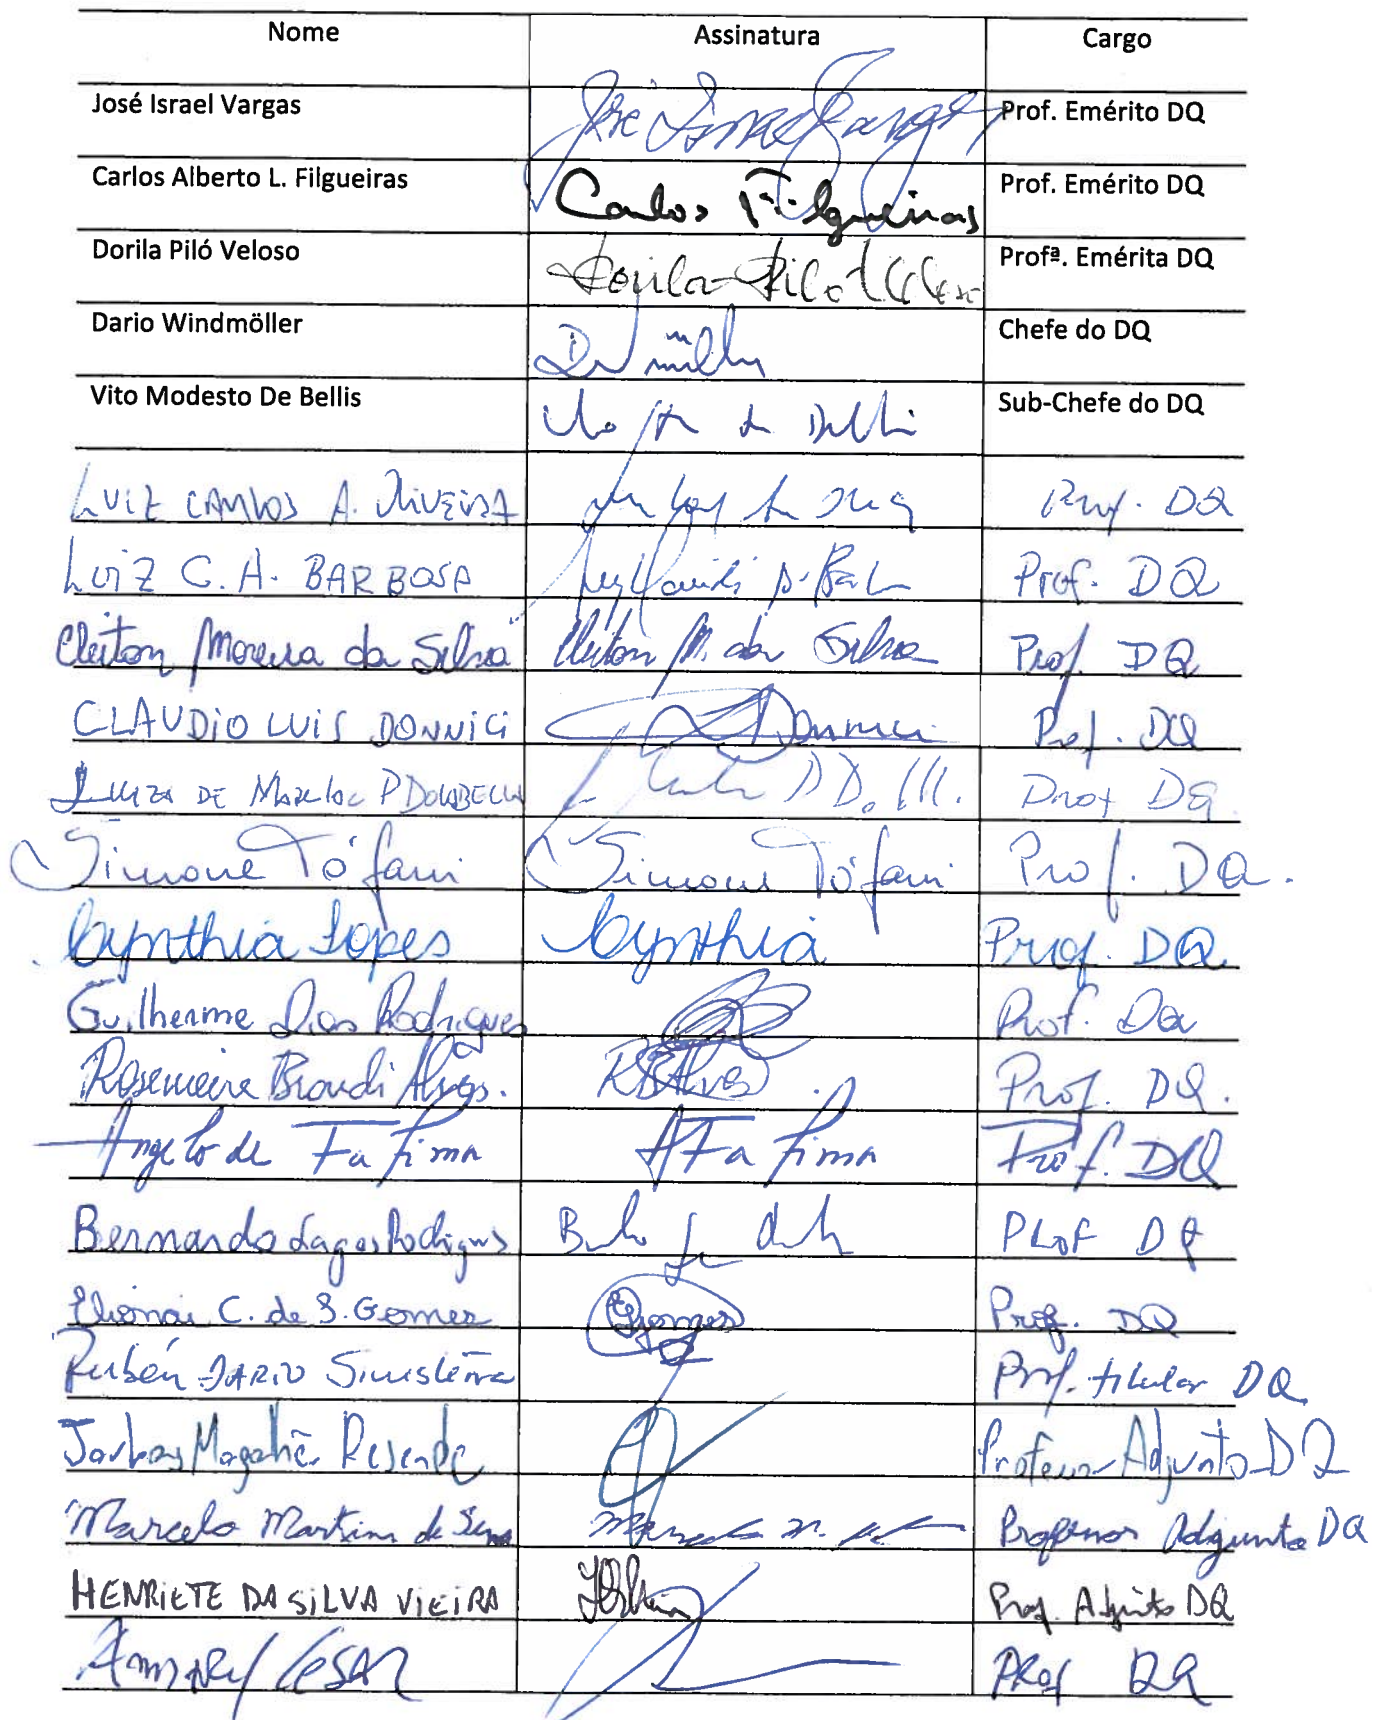 Nome Assinatura Cargo
José Israel Vargas José Israel Vargas Prof. Emérito DQ
Carlos Alberto L. Filgueiras Carlos Filgueiras Prof. Emérito DQ
Dorila Piló Veloso Dorila Piló Veloso Profª. Emérita DQ
Dario Windmöller Chefe do DQ
Vito Modesto De Bellis De Bellis Sub-Chefe do DQ
LUIZ CARLOS A. OLIVEIRA Prof. DQ
LUIZ C. A. BARBOSA Prof. DQ
Cleiton Moreira da Silva Cleiton M. da Silva Prof DQ
CLAUDIO LUIS DONNICI Donnici Prof. DQ
LUIZA DE P DOLABELLA Prof DQ
Simone Tófani Simone Tófani Prof. DQ.
Cynthia Lopes Cynthia Prof. DQ
Guilherme Dias Rodrigues Prof. DQ
Rosemeire Brondi Alves. RBAlves Prof. DQ.
Angelo de Fatima AFatima Prof. DQ
Bernardo Lages Rodrigues Prof DQ
Elionai C. de S. Gomes Gomes Prof. DQ
Rubén DARIO Sinisterra Prof. titular DQ
Jarbas Magalhães Resende Professor Adjunto DQ
Marcelo Martins de Sena Marcelo M. Professor Adjunto DQ
HENRIETE DA SILVA VIEIRA Prof. Adjunto DQ
AMARY CESAR PROF DQ